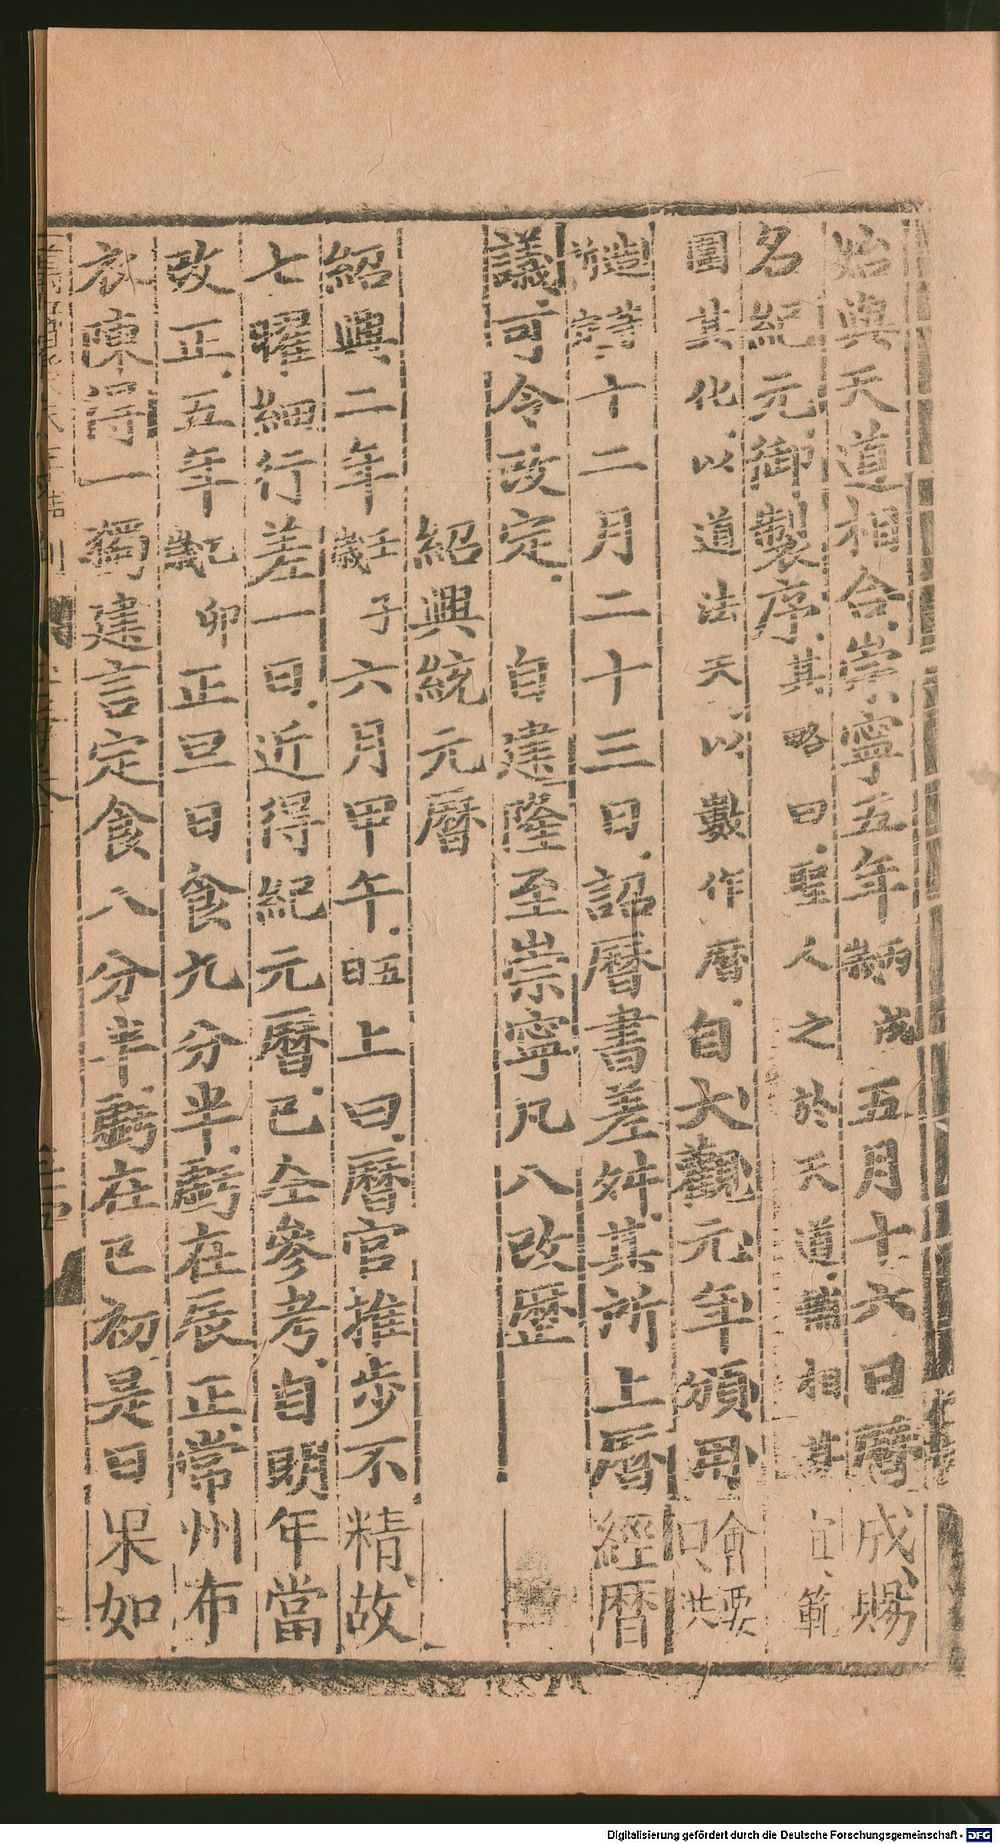 始與天道相合崇寧五年歲丙戌五月十六日曆成賜
名紀元御製序其略曰聖人之於天道輔相其宜範
圍其化以道法天以數作曆自大觀元年頒用會要只
造請十二月二十三日詔曆書差舛其所上曆經曆
議可令改定 自建隆至崇寧凡八改曆
紹興統元曆
紹興二年歲壬子六月甲午五日上曰曆官推步不精故
七曜細行差一日近得紀元曆已仝參考自明年當
改正五年歲乙卯正旦日食九分半虧在辰正常州布
衣陳得一獨建言定食八分半虧在巳初是日果如
Digitalisierung gefördert durch die Deutsche Forschungsgemeinschaft - DFG